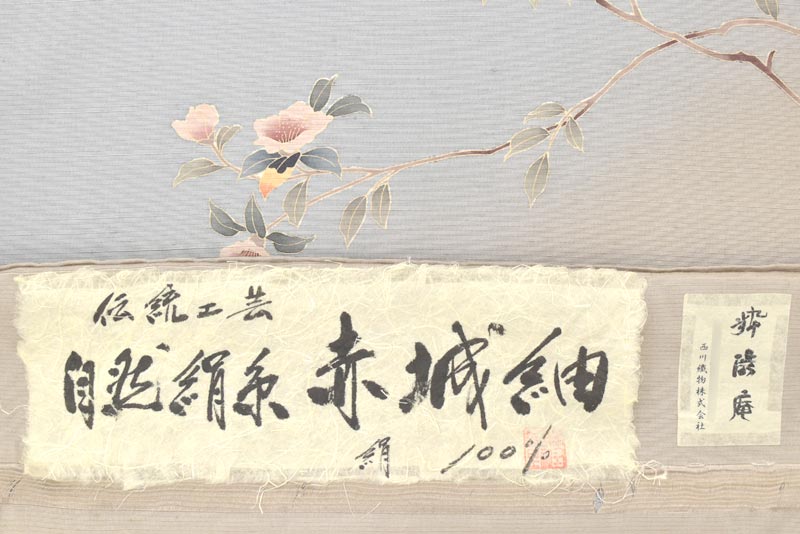 伝統工芸
自然絹糸 赤城紬
絹 100%
西川織物株式会社